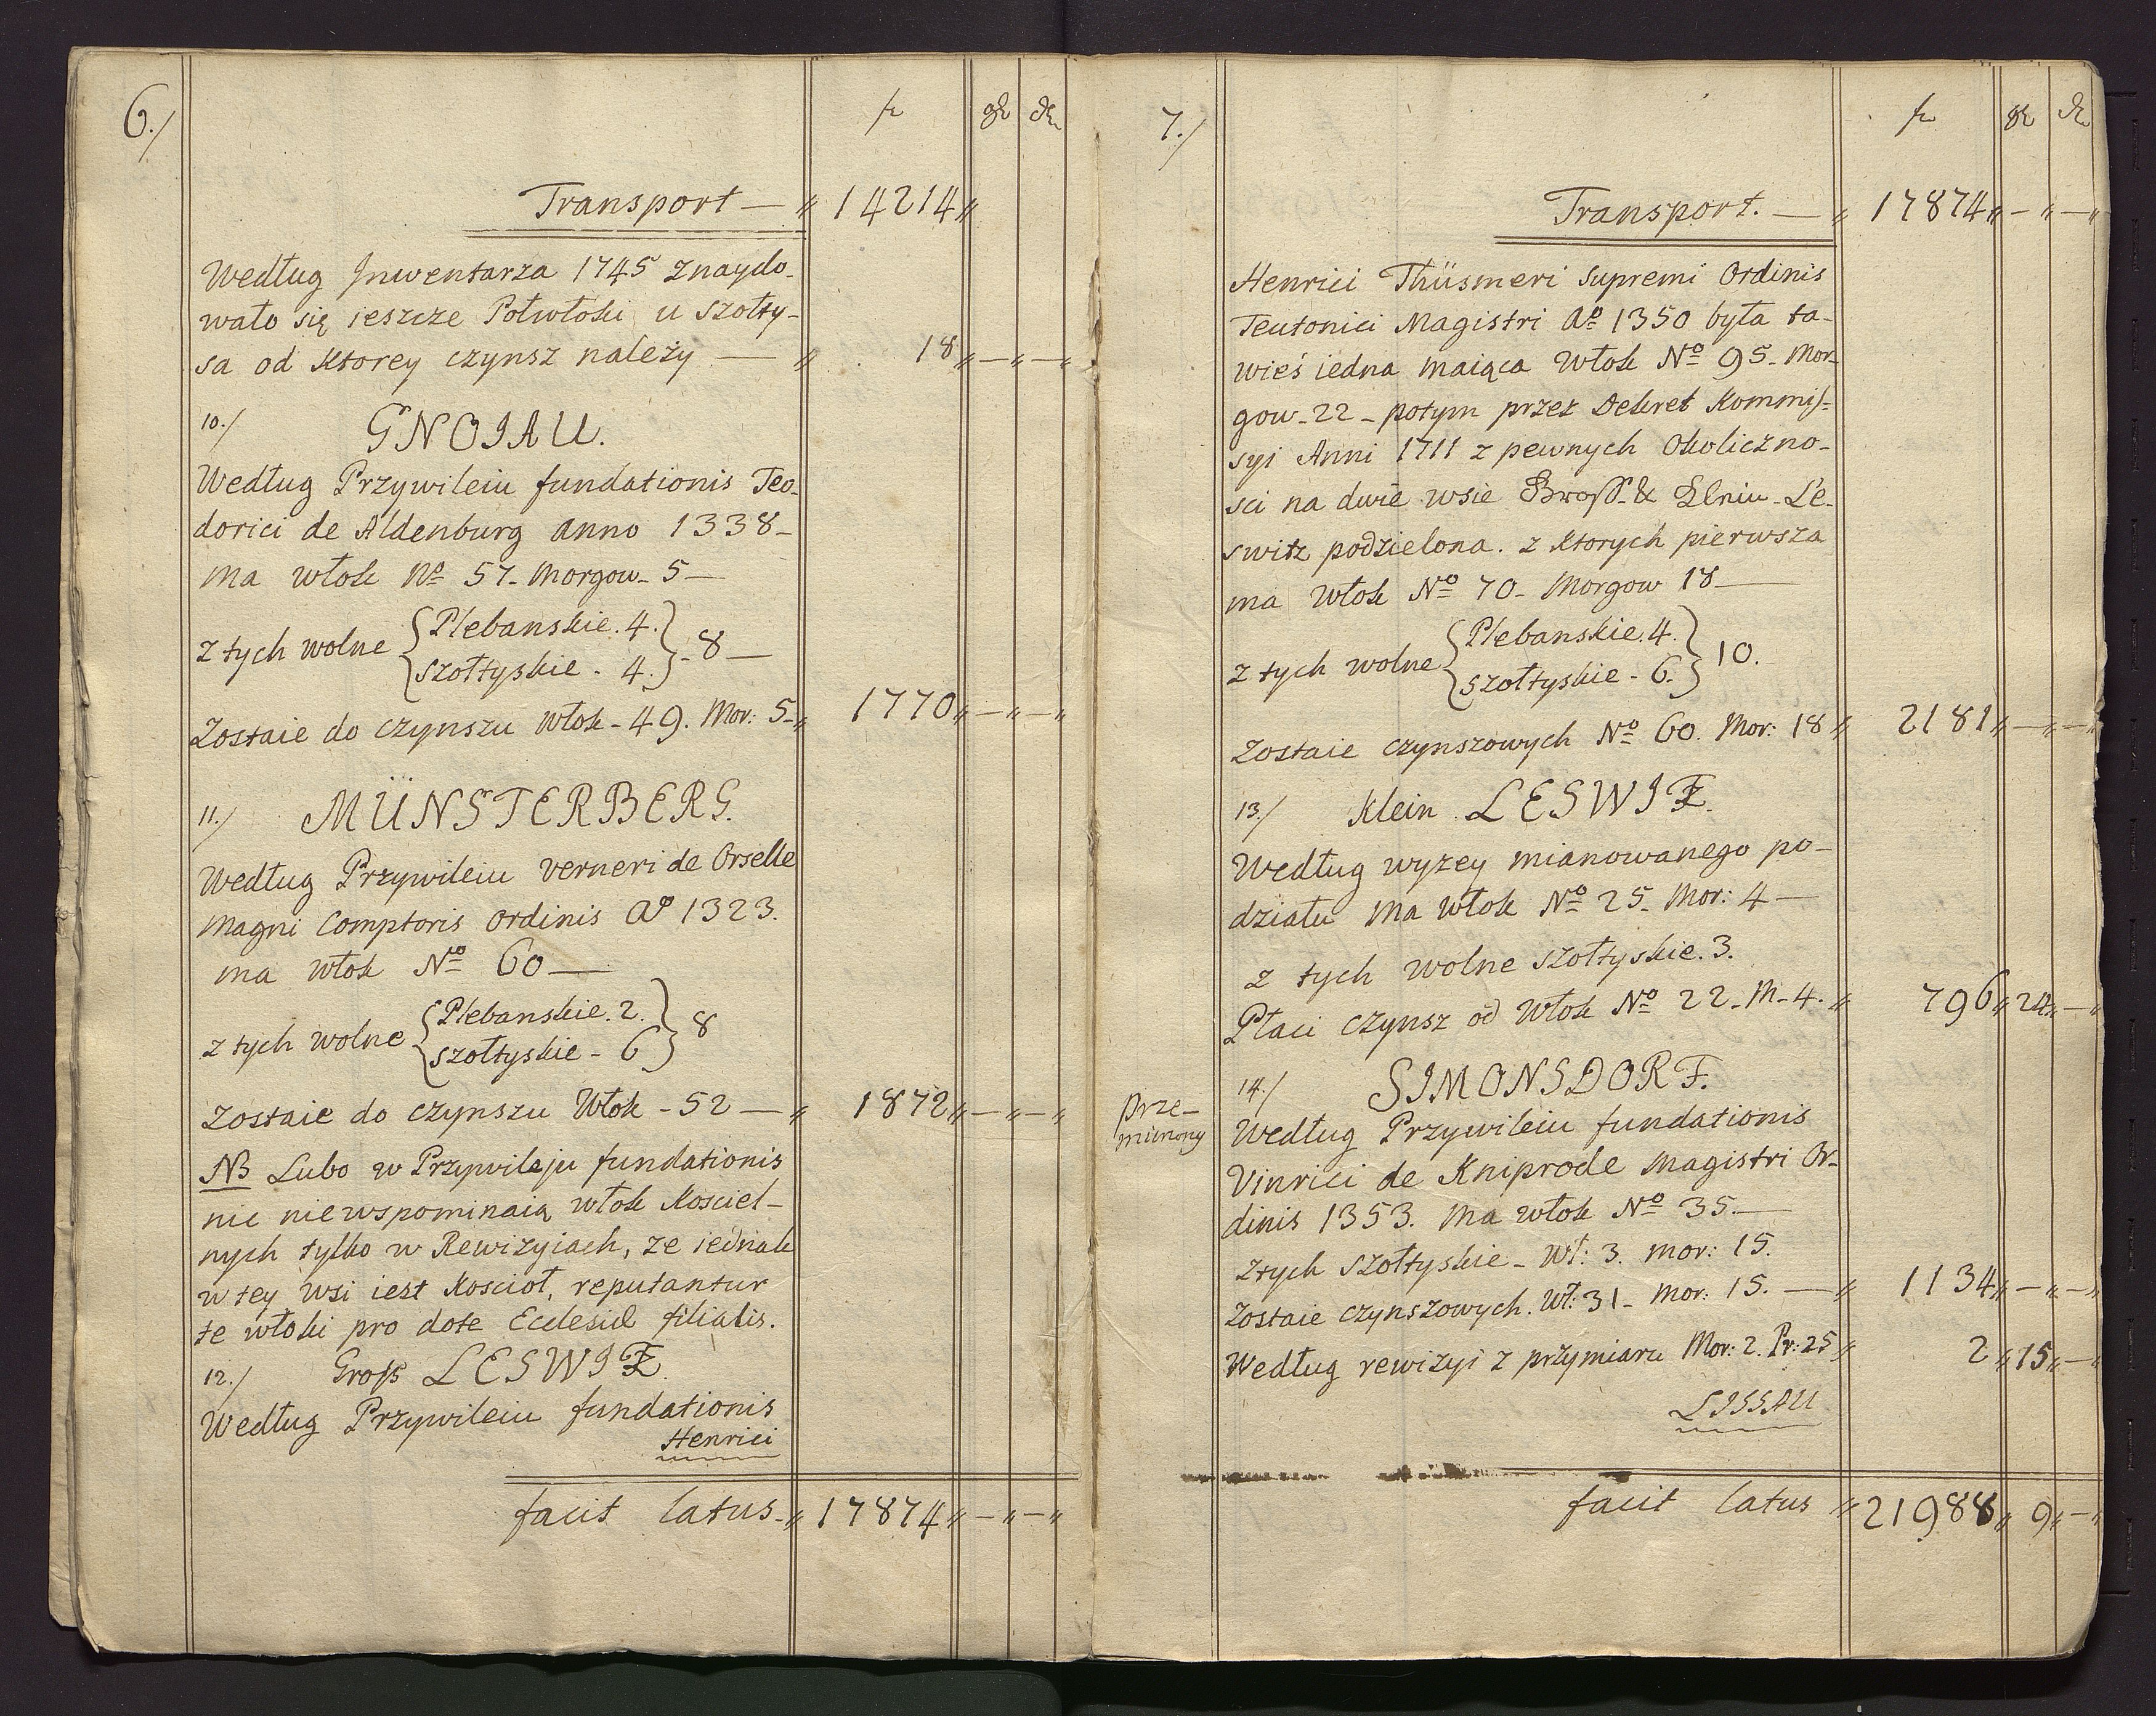 6./
fr gr den
Transport — „ 14214 „
Według Inwentarza 1745 znaydo-
wało się ieszcze Połwłoki u szołty-
sa od ktorey czynsz należy — „ 18 „ — „ — „
10./ GNOIAU.
Według Przywileiu fundationis Teo-
dorici de Aldenburg anno 1338 -
ma włok No 57 - Morgow - 5 —
z tych wolne { Plebanskie. 4. } - 8 —
szołtyskie - 4.
Zostaie do czynszu włok - 49. Mor: 5 - „ 1770 „ — „ — „
11./ MÜNSTERBERG.
Według Przywileiu verneri de Orselle
Magni Comptoris ordinis Ao 1323.
ma włok No 60 —
z tych wolne { Plebanskie. 2. } 8
szołtyskie - 6
zostaie do czynszu Włok - 52 — „ 1872 „ — „ — „
NB Lubo w Przywileju fundationis
nic niewspominaią włok Kosciel-
nych tylko w Rewizyiach, ze iednak
w tey wsi iest Koscioł, reputantur
te włoki pro dote Ecclesiæ filialis.
12./ Gross LESWIZ.
Według Przywileiu fundationis
Henrici
facit latus - „ 17874 „ — „ — „
7./
fr gr den
Transport. — „ 17874 „ — „ — „
Henrici Thüsmeri supremi Ordinis
Teutonici Magistri Ao 1350 była ta-
wieś iedna maiąca włok No 95 - Mor-
gow - 22 - potym przez Dekret Kommis-
syi Anni 1711 z pewnych Okoliczno-
sci na dwie wsie Gross - & Klein - Le-
switz podzielona. z ktorych pierwsza
ma włok No 70 - Morgow 18 —
z tych wolne { Plebanskie. 4. } 10.
szołtyskie - 6.
zostaie czynszowych No 60. Mor: 18 „ 2181 „ — „ — „
13./ Klein LESWIZ.
Według wyzey mianowanego po-
działu ma włok No 25 - Mor: 4 —
z tych wolne szołtyskie. 3.
Płaci czynsz od Włok No 22 - M - 4. „ 796 „ 24 „ — „
14./ SIMONSDORF.
Prze-
Według Przywileiu fundationis
Vinrici de Kniprode Magistri Or-
dinis 1353. Ma włok No 35. —
z tych szołtyskie - Wł: 3. mor: 15.
zostaie czynszowych. Wł: 31 - Mor: 15. — „ 1134 „ — „ — „
Według rewizyi z przymiaru Mor: 2. Pr: 25 „ 2 „ 15 „ — „
LISSAU
facit latus „ 21988 „ 9 „ — „